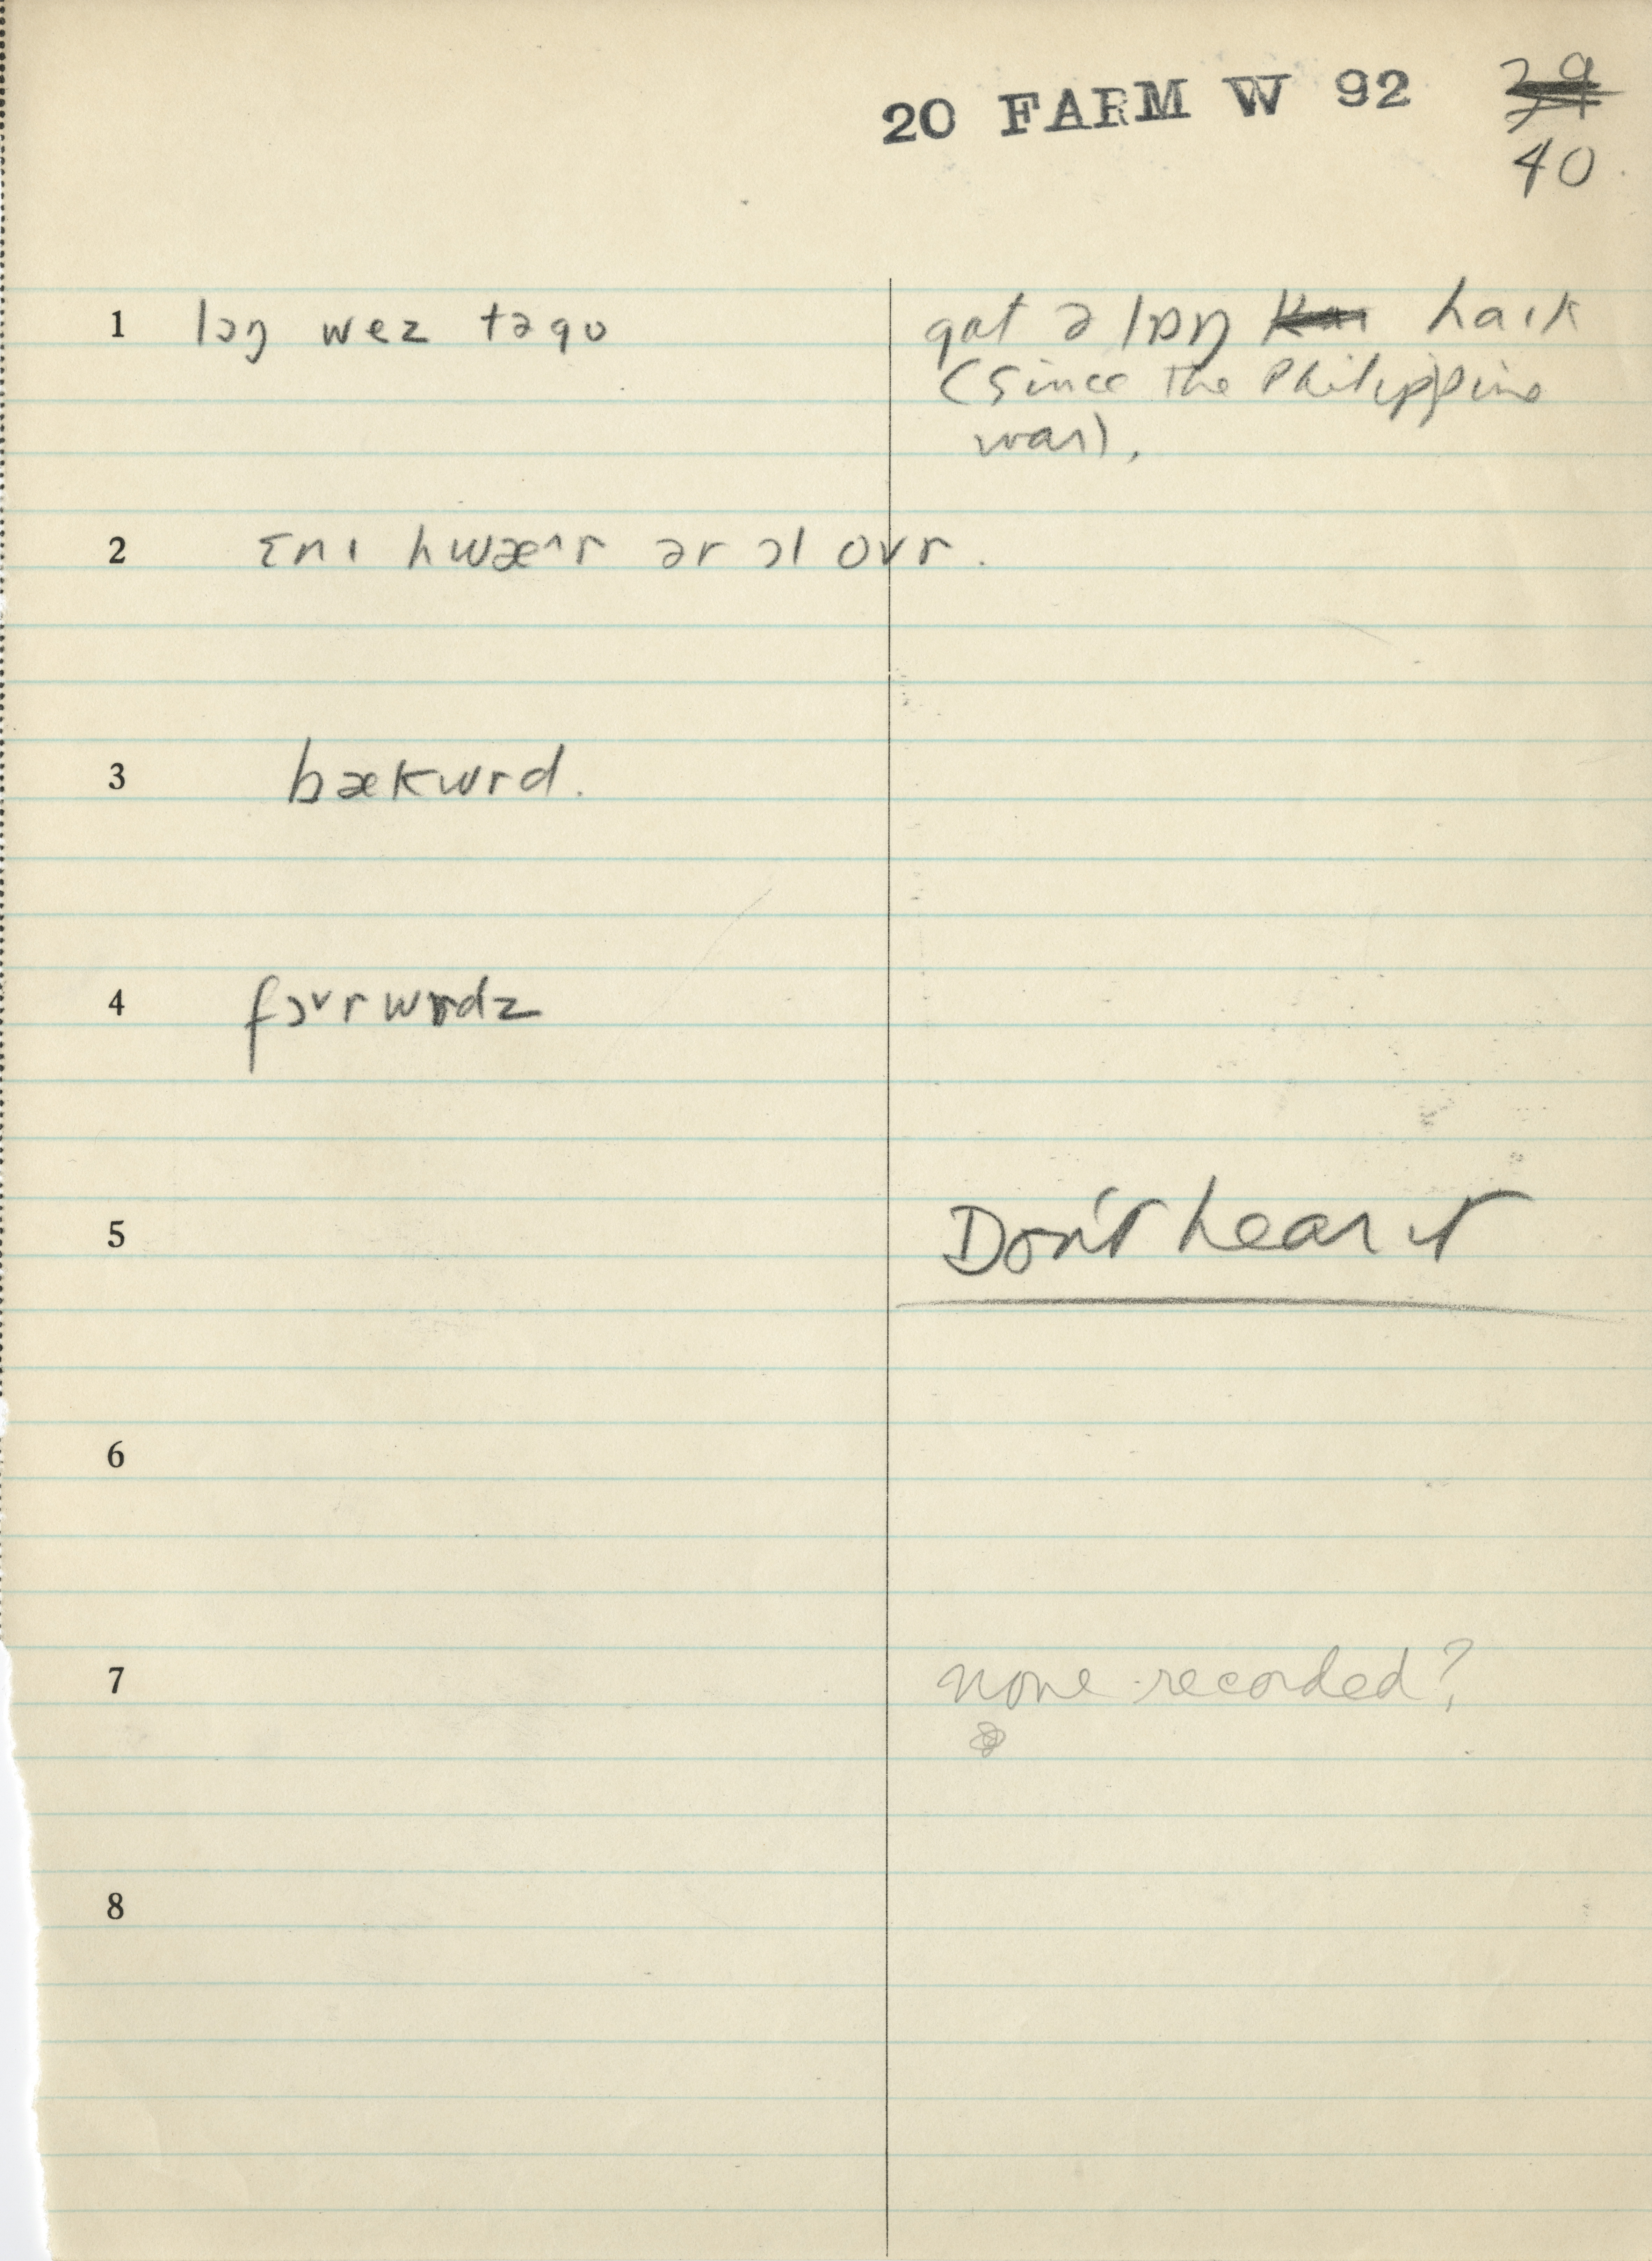 20 FARM W 92
40
1 lɔŋ wez təgo
gɑt ə lɒŋ haɪk
(since the Philippine
war).
2 ɛnɪ hwæ^r ər ɔl ovr.
3 bækwrd.
4 fɔvrwrdz
5 Don't hear it
6
7 none recorded?
8